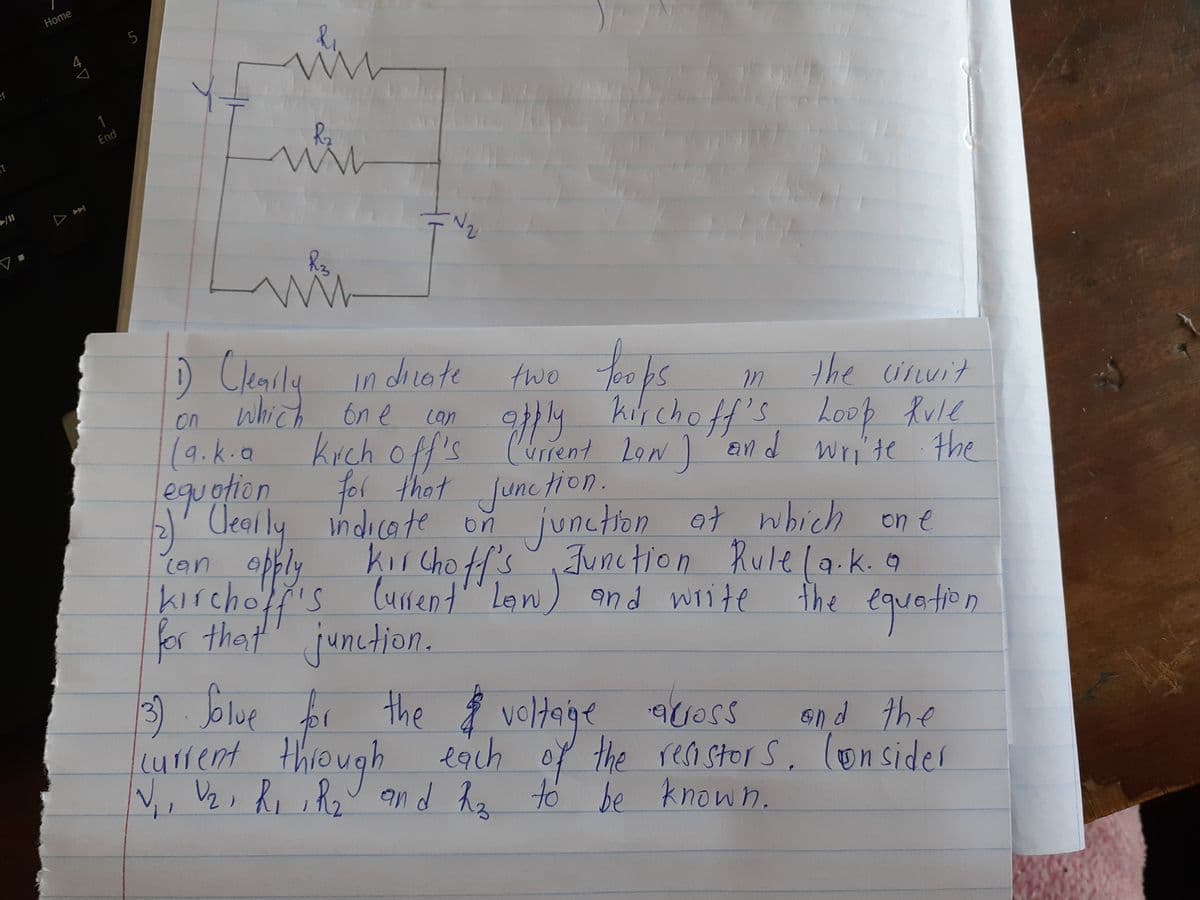 Home
4
5
1
End
R₁
V₁
R₂
V₂
R₃
1) Clearly indicate two loops in the circuit
on which one can apply kirchoff's Loop Rule
(a.k.a kirchoff's Current Law) and write the
equation for that junction.
2) Clearly indicate on junction at which one
can apply kirchoff's Junction Rule (a.k.a
kirchoff's Current Law) and write the equation
for that junction.
3) Solve for the voltage across and the
current through each of the resistors. Consider
V₁, V₂, R₁, R₂ and R₃ to be known.